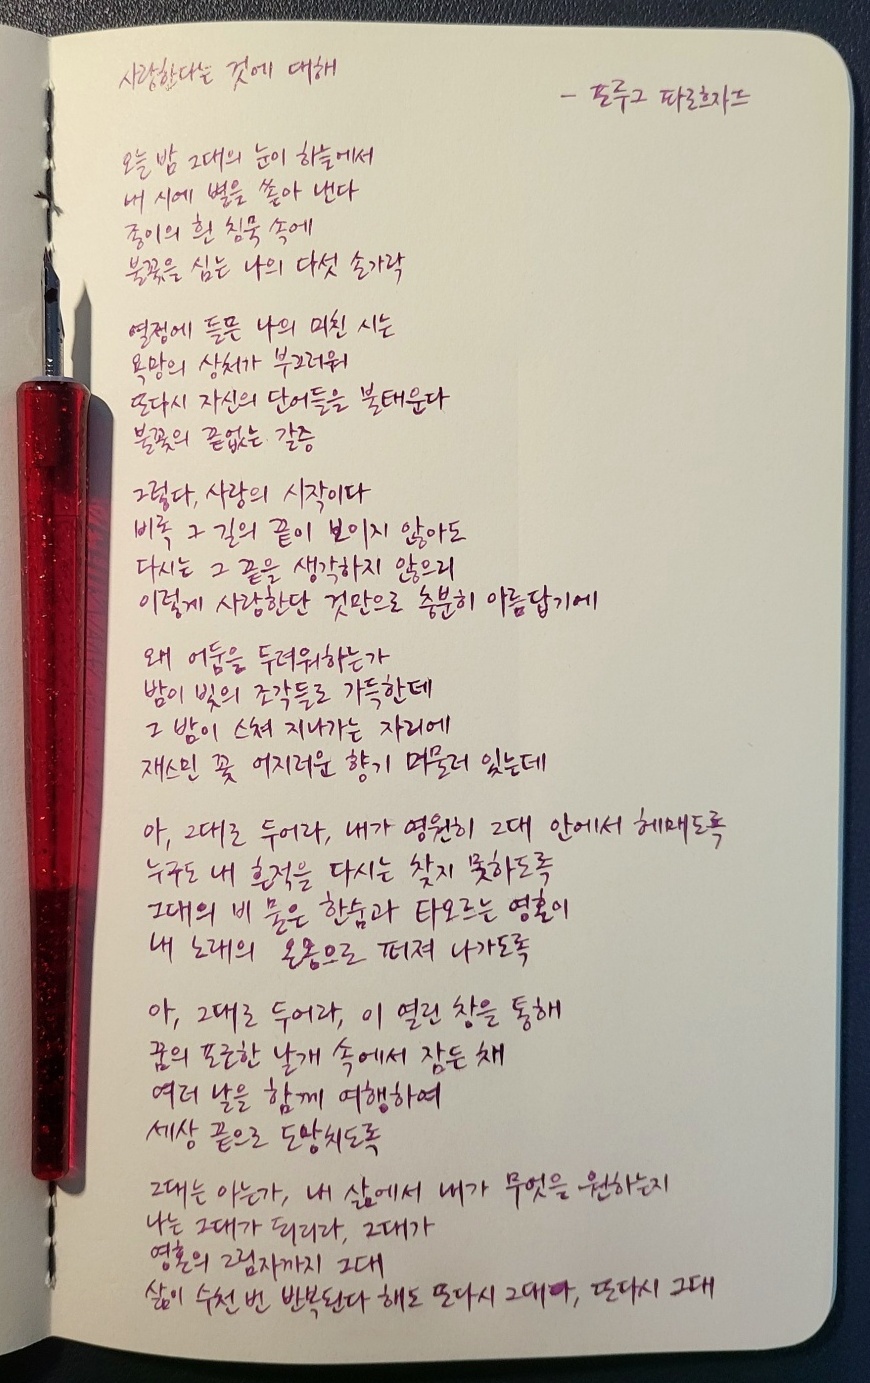 사랑한다는 것에 대해
- 포루그 파로흐자드
오늘 밤 그대의 눈이 하늘에서
내 시에 별을 쏟아 낸다
종이의 흰 침묵 속에
불꽃을 심는 나의 다섯 손가락
열정에 들뜬 나의 미친 시는
욕망의 상처가 부끄러워
또다시 자신의 단어들을 불태운다
불꽃의 끝없는 갈증
그렇다, 사랑의 시작이다
비록 그 길의 끝이 보이지 않아도
다시는 그 끝을 생각하지 않으리
이렇게 사랑한단 것만으로 충분히 아름답기에
왜 어둠을 두려워하는가
밤이 빛의 조각들로 가득한데
그 밤이 스쳐 지나가는 자리에
재스민 꽃 어지러운 향기 머물러 있는데
아, 그대로 두어라, 내가 영원히 그대 안에서 헤매도록
누구도 내 흔적을 다시는 찾지 못하도록
그대의 비 묻은 한숨과 타오르는 영혼이
내 노래의 온몸으로 퍼져 나가도록
아, 그대로 두어라, 이 열린 창을 통해
꿈의 포근한 날개 속에서 잠든 채
여러 날을 함께 여행하여
세상 끝으로 도망치도록
그대는 아는가, 내 삶에서 내가 무엇을 원하는지
나는 그대가 되리라, 그대가
영혼의 그림자까지 그대
삶이 수천 번 반복된다 해도 또다시 그대다, 또다시 그대